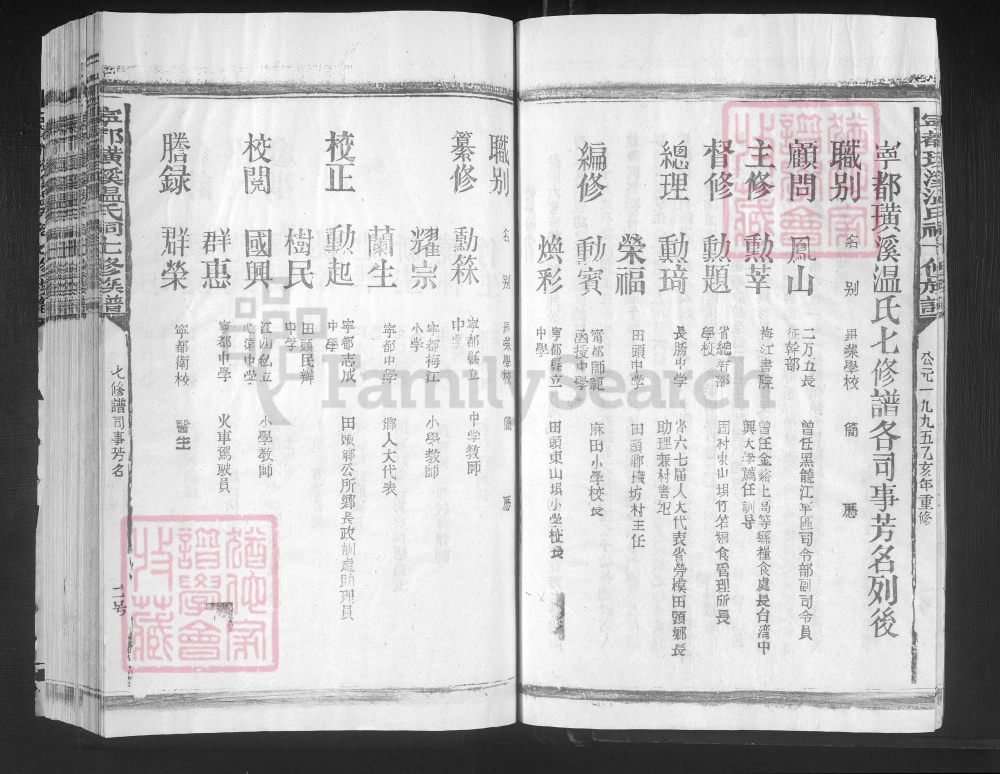 公元一九九五乙亥年重修
寧都璜溪温氏七修譜各司事芳名列後
職别 名别 畢業學校 簡歷
顧問 鳳山 二万五長征幹部 曾任黑龍江軍區司令部副司令員
主修 勲莘 梅江書院
督修 勲題 學校
總理 勲琦 長勝中學 省六七屆人大代表省勞模田頭鄉長
榮福 田頭中學 田頭鄉璜坊村主任
編修 勲賓 寧都師範函授中學 麻田小學校長
焕彩 寧都縣立中學 田頭東山垻小學校長
職别 名别 畢業學校 簡歷
纂修 勲箓 寧都縣立中學 中学教師
耀宗 寧都梅江小学 小學教師
蘭生 寧都中學 鄉人大代表
校正 勲起 寧都志成中學 田頭鄉公所鄉長政訓處助理員
樹民 田頭民辦中学
校閲 國興 江西私立心遠中學 小學教師
群惠 寧都中學 火車駕駛員
謄録 群榮 寧都衛校 醫生
寧都璜溪温氏祠七修族譜
七修譜司事芳名
二号
FamilySearch